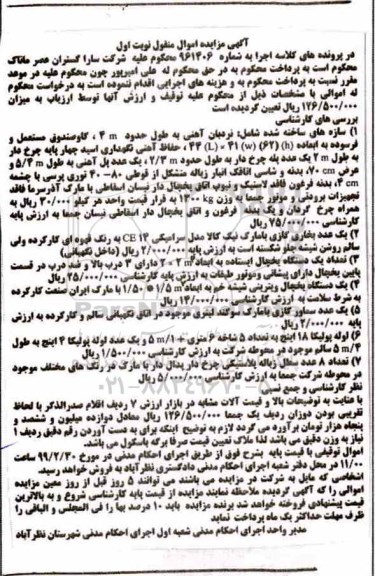 آگهی مزایده اموال منقول نوبت اول
در پرونده های کلاسه اجرا به شماره ۹۶۱۴۰۶ محکوم علیه شرکت سارا گستران عصر ماناک
محکوم است به پرداخت محکوم به در حق محکوم له علی امیرپور چون محکوم علیه در موعد
مقرر نسبت به پرداخت محکوم به و هزینه های اجرایی اقدام ننموده است به درخواست محکوم
له اموالی با مشخصات ذیل از محکوم علیه توقیف و ارزش آنها توسط ارزیاب به میزان
۱۲۶/۵۰۰/۰۰۰ ریال تعیین گردیده است
بررسی های کارشناسی
۱) سازه های ساخته شده شامل: نردبان آهنی به طول حدود ۴ m ، کاوصندوق مستعمل و
فرسوده به ابعاده (H) (۶۲) (W) ۴۱ (L) ۴۴ ، حفاظ آهنی نگهداری اسید چهار پایه چرخ دار
به طول ۲ m یک عدد پله چرخ دار به طول حدود ۲/۳ m ، یک عدد پل آهنی به طول ۵/۴ m و
عرض ۷۰ cm، بدنه و شاسی اتاقک انبار زباله متشکل از قوطی ۸۰-۴۰ توری پرسی با چشمه
۴ cm، بدنه فرغون فاقد لاستیک و تیوپ اتاق یخچال دار نیسان اسقاطی با مارک آذرسرما فاقد
تجهیزات برودتی و موتور جمعا به وزن ۱۲۰۰ kg به قرار قیمت واحد هر کیلو ۳۰/۰۰۰ ریال به
همراه چرخ گرمان و یک عدد فرغون و اتاق یخچال دار اسقاطی نیسان جمعا به ارزش پایه
کارشناسی ۷۵/۰۰۰/۰۰۰ ریال
۲) یک عدد بخاری گازی بامارک نیک کالا مدل سرامیکی CE ۱۴ به رنگ قهوه ای کارکرده ولی
سالم روشن شیشه جلو شکسته است به ارزش پایه ۲/۰۰۰/۰۰۰ ریال (داخل نگهبانی)
۳) تعداد یک دستگاه یخچال ایستاده به ابعاد ۲m * ۲ دارای ۳ درب بالا و سه درب در قسمت
پایین یخچال دارای پیشانی وموتور طبقات به ارزش پایه کارشناسی ۲۵/۰۰۰/۰۰۰ ریال
۴) یک دستگاه یخچال ویترینی شیشه خم به ابعاد ۱/۵ m * ۱/۵۰ با مارک ایران صنعت کارکرده
به شرط سلامت به ارزش کارشناسی ۱۴/۰۰۰/۰۰۰ ریال
۵) یک عدد سماور گازی بامارک سوگند لیتری موجود در اتاق نگهبانی سالم و کارکرده به ارزش
پایه ۲/۰۰۰/۰۰۰ ریال
۶) لوله پولیکا ۱۸ اینچ به تعداد ۵ شاخه ۶ متری + ۵ m/۱ و یک عدد لوله پولیکا ۴ اینچ به طول
۵ m/۱ سالم موجود در محوطه شرکت به ارزش کارشناسی ۱/۵۰۰/۰۰۰ ریال
۷) تعداد ۸ عدد سطل زباله پلاستیکی چرخ دار پدال دار با مارک در رنگ های مختلف موجود
در محوطه شرکت جمعا به ارزش کارشناسی ۵/۰۰۰/۰۰۰ ریال
نظر کارشناسی و جمع بندی
با عنایت به توضیحات بالا و قیمت آلات مشابه در بازار ارزش ۷ ردیف اقلام صدرالذکر با لحاظ
تقریبی بودن دوزان ردیف یک جمعا ۱۲۶/۵۰۰/۰۰۰ ریال معادل دوازده میلیون و ششصد و
پنجاه هزار تومان برآورد می گردد لازم به توضیح اینکه برای به دست آوردن رقم دقیق ردیف ۱
نیاز به وزن دقیق می باشد لذا ملاک تعیین قیمت صرفا برکه باسکول می باشد.
اموال توقیفی با قیمت پایه بشرح فوق از طریق اجرای احکام مدنی در مورخ ۹۹/۲/۳۰ ساعت
۱۱/۰۰ در محل دفتر شعبه اجرای احکام مدنی دادگستری نظرآباد به فروش خواهد رسید.
اشخاصی که مایل به شرکت در مزایده می باشند می توانند ۵ روز قبل از روز معین مزایده
اموالی را که آگهی گردیده ملاحظه نمایند مزایده از قیمت پایه کارشناسی شروع و به بالاترین
قیمت پیشنهادی فروخته خواهد شد برنده مزایده باید ۱۰ درصد بها را فی المجلس و الباقی را
ظرف مهلت حداکثر یک ماه پرداخت نماید
مدیر واحد اجرای احکام مدنی شعبه اول اجرای احکام مدنی شهرستان نظرآباد